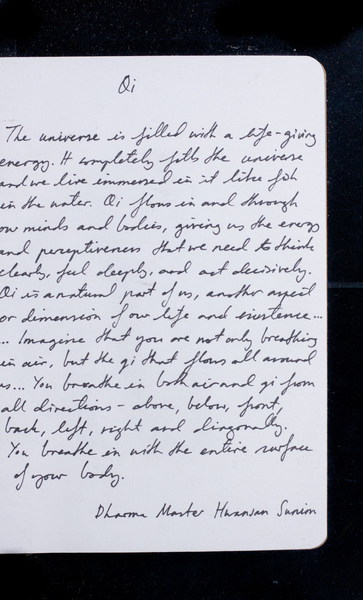 Qi
The universe is filled with a life-giving
energy. It completely fills the universe
and we live immersed in it like fish
in the water. Qi flows in and through
our minds and bodies, giving us the energy
and perceptiveness that we need to think
clearly, feel deeply, and act decisively.
Qi is a natural part of us, another aspect
or dimension of our life and existence...
... Imagine that you are not only breathing
in air, but the qi that flows all around
us... You breathe in both air and qi from
all directions - above, below, front,
back, left, right and diagonally.
You breathe in with the entire surface
of your body.
Dharma Master Hwansan Sunim